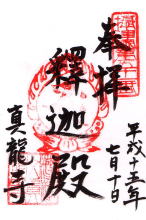 奉拝
平成十五年
七月十日
釋迦殿
真龍寺